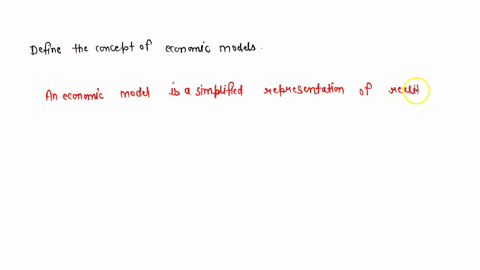 Define the concept of economic models.
An economic model is a simplified representation of realit